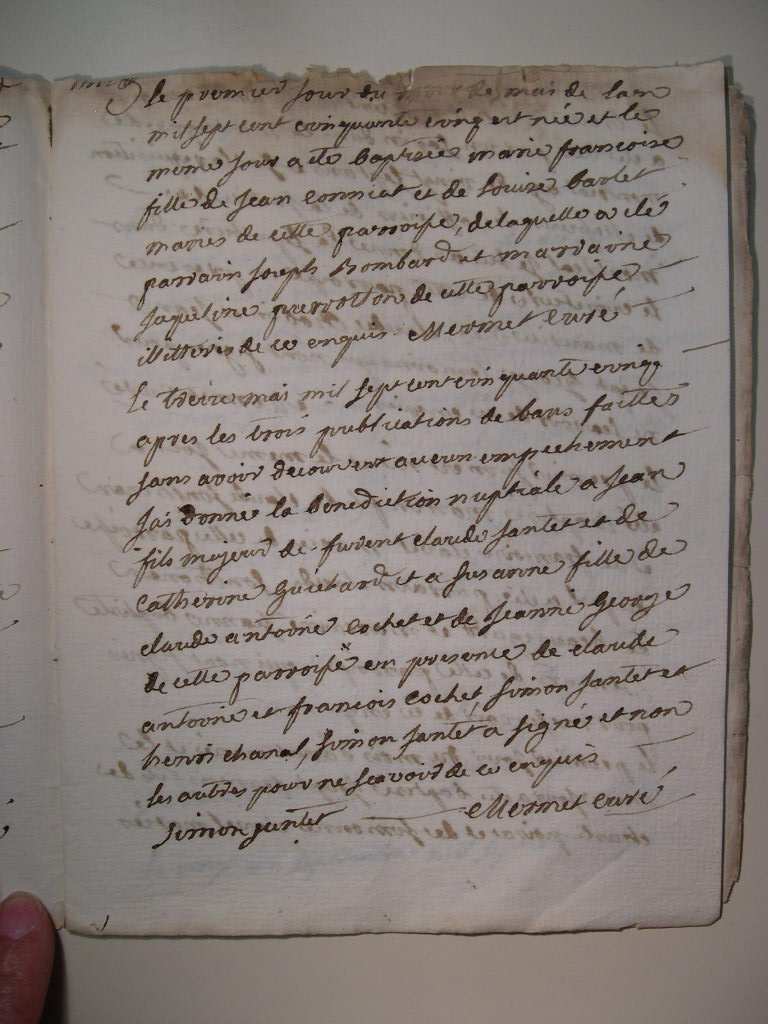 le premier jour du mois de mai de lan
mil sept cent cinquante cinq est née et le
meme jour a ete baptisée marie francoise
fille de jean conniat et de louise barlet
maries de cette parroisse, de laquelle a été
parrain joseph Bombard et marraine
jaqueline perroTTon de cette parroisse
illitteris de ce enquis. Mermet curé
le treize mai mil sept cent cinquante cinq
apres les trois publications de bans faittes
sans avoir decouvert aucun empechement
jai donné la benediction nuptiale a jean
fils majeur de furent claude jantet et de
catherine guietard et a susanne fille de
claude antoine cochet et de jeanne george
de cette parroisse en presence de claude
antoine et francois cochet, simon jantet et
henri chanal, simon jantet a signé et non
les autres pour ne scavoir de ce enquis
simon jantet Mermet curé